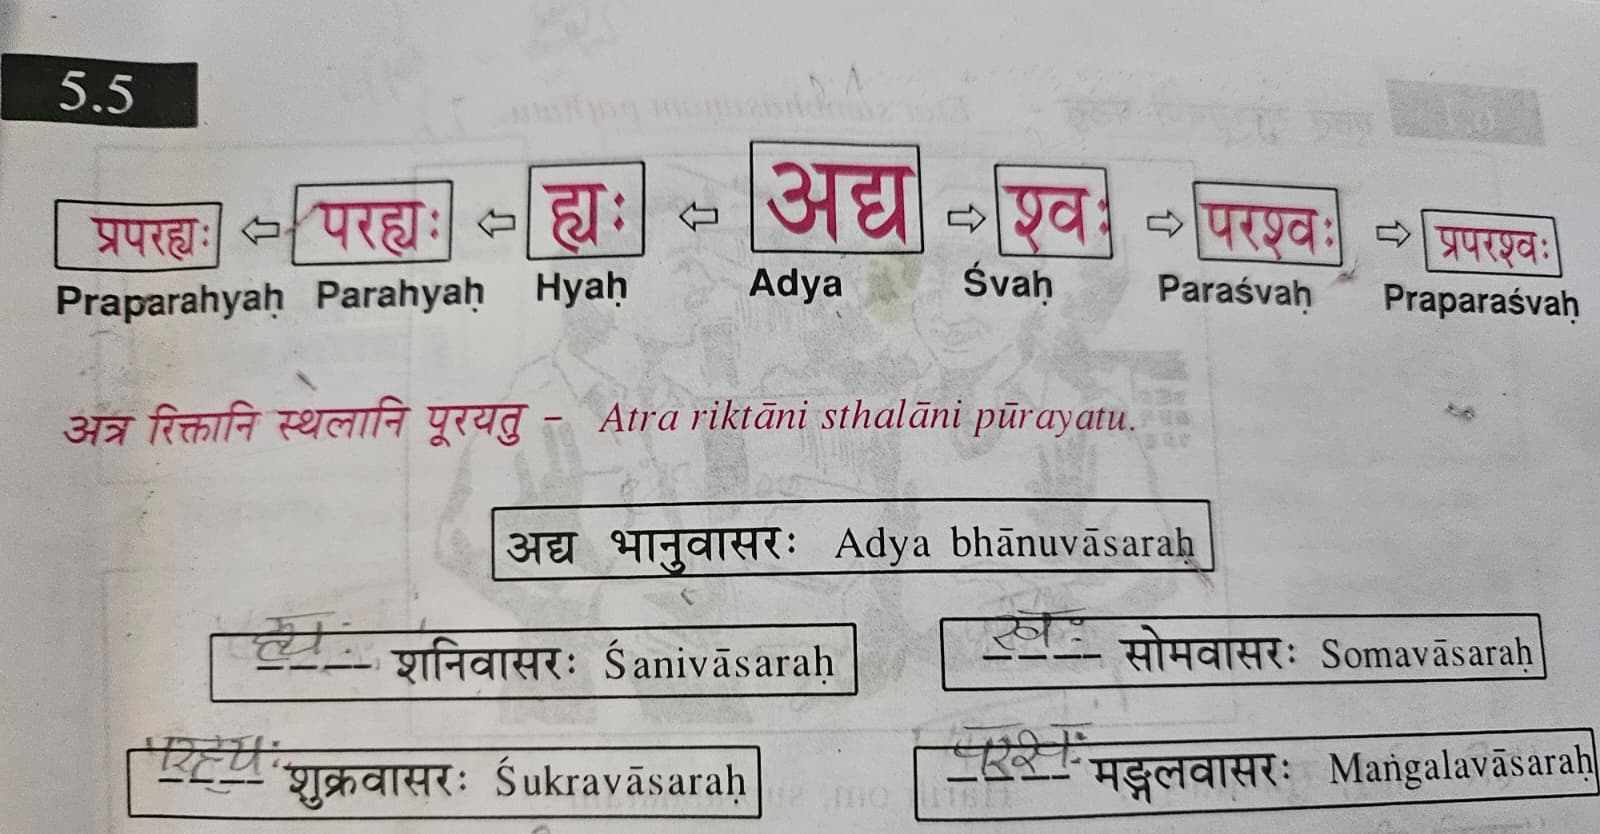 5.5
प्रपरह्यः ⇦ परह्यः ⇦ ह्यः ⇦ अद्य ⇨ श्वः ⇨ परश्वः ⇨ प्रपरश्वः
Praparahyaḥ Parahyaḥ Hyaḥ Adya Śvaḥ Paraśvaḥ Praparaśvaḥ
अत्र रिक्तानि स्थलानि पूरयतु – Atra riktāni sthalāni pūrayatu.
अद्य भानुवासरः Adya bhānuvāsaraḥ
ह्यः शनिवासरः Śanivāsaraḥ
श्वः सोमवासरः Somavāsaraḥ
परह्यः शुक्रवासरः Śukravāsaraḥ
परश्वः मङ्गलवासरः Maṅgalavāsaraḥ